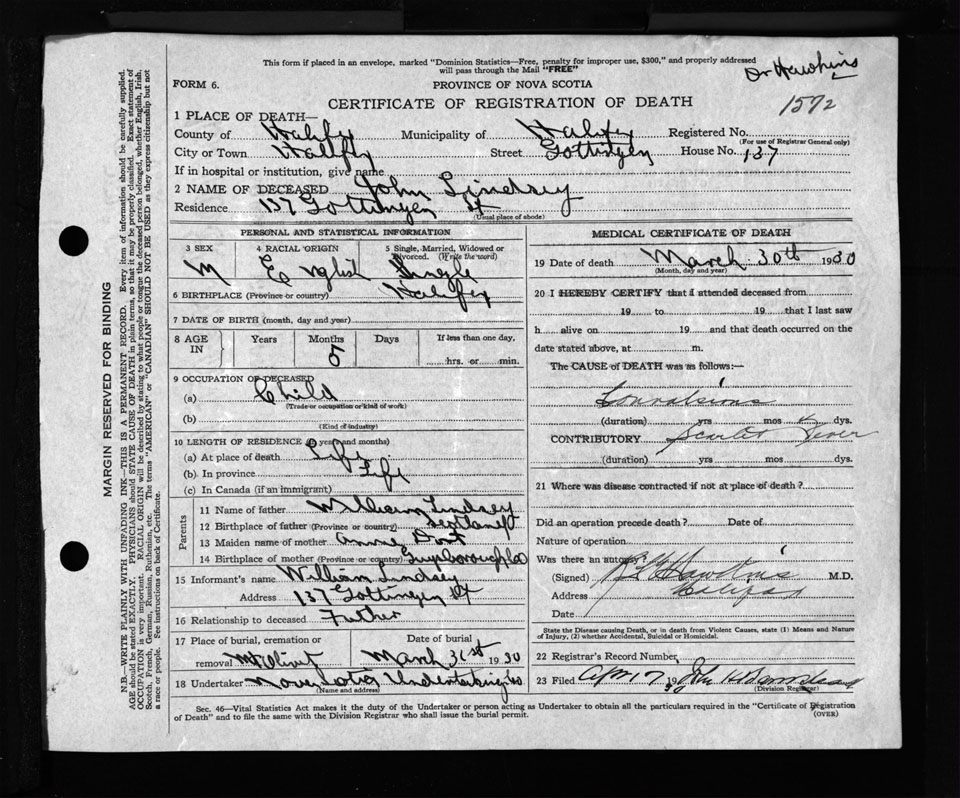 This form if placed in an envelope, marked "Dominion Statistics—Free, penalty for improper use, $300," and properly addressed
will pass through the Mail "FREE"
Dr Hawkins
FORM 6.
PROVINCE OF NOVA SCOTIA
1572
CERTIFICATE OF REGISTRATION OF DEATH
1 PLACE OF DEATH—
County of Halifax Municipality of Halifax Registered No.
(For use of Registrar General only)
City or Town Halifax Street Gottingen House No. 137
If in hospital or institution, give name
2 NAME OF DECEASED John Lindsey
Residence 137 Gottingen St
(Usual place of abode)
PERSONAL AND STATISTICAL INFORMATION
3 SEX 4 RACIAL ORIGIN 5 Single, Married, Widowed or Divorced. (Write the word)
M English Single
6 BIRTHPLACE (Province or country) Halifax
7 DATE OF BIRTH (month, day and year)
8 AGE IN Years Months Days If less than one day,
5 hrs. or min.
9 OCCUPATION OF DECEASED
(a) Child
(Trade or occupation or kind of work)
(b)
(Kind of industry)
10 LENGTH OF RESIDENCE (in years and months)
(a) At place of death Life
(b) In province Life
(c) In Canada (if an immigrant)
Parents
11 Name of father William Lindsey
12 Birthplace of father (Province or country) Scotland
13 Maiden name of mother Annie
14 Birthplace of mother (Province or country)
15 Informant's name William Lindsey
Address 137 Gottingen St
16 Relationship to deceased Father
17 Place of burial, cremation or Date of burial
removal Mt Olivet March 31st 1930
18 Undertaker Nova Scotia Undertaking Co
(Name and address)
MEDICAL CERTIFICATE OF DEATH
19 Date of death March 30th 1930
(Month, day and year)
20 I HEREBY CERTIFY that I attended deceased from
19 to 19 that I last saw
h alive on 19 and that death occurred on the
date stated above, at m.
The CAUSE OF DEATH was as follows:—
Convulsions
(duration) yrs mos dys.
CONTRIBUTORY Scarlet Fever
(duration) yrs mos dys.
21 Where was disease contracted if not at place of death?
Did an operation precede death? Date of
Nature of operation
Was there an autopsy?
(Signed) Hawkins M.D.
Address Halifax
Date
State the Disease causing Death, or in death from Violent Causes, state (1) Means and Nature
of Injury, (2) whether Accidental, Suicidal or Homicidal.
22 Registrar's Record Number
23 Filed Apr 17 19 John
(Division Registrar)
Sec. 46—Vital Statistics Act makes it the duty of the Undertaker or person acting as Undertaker to obtain all the particulars required in the "Certificate of Registration
of Death" and to file the same with the Division Registrar who shall issue the burial permit.
(OVER)
MARGIN RESERVED FOR BINDING
N.B.—WRITE PLAINLY WITH UNFADING INK—THIS IS A PERMANENT RECORD. Every item of information should be carefully supplied.
AGE should be stated EXACTLY. PHYSICIANS should STATE CAUSE OF DEATH in plain terms, so that it may be properly classified. Exact statement of
OCCUPATION is very important. RACIAL ORIGIN will be described by stating to what people or tongue the deceased person belonged, whether English, Irish,
Scotch, French, German, Russian, Ruthenian, etc. The terms "AMERICAN" or "CANADIAN" SHOULD NOT BE USED as they express citizenship but not
a race or people. See instructions on back of Certificate.